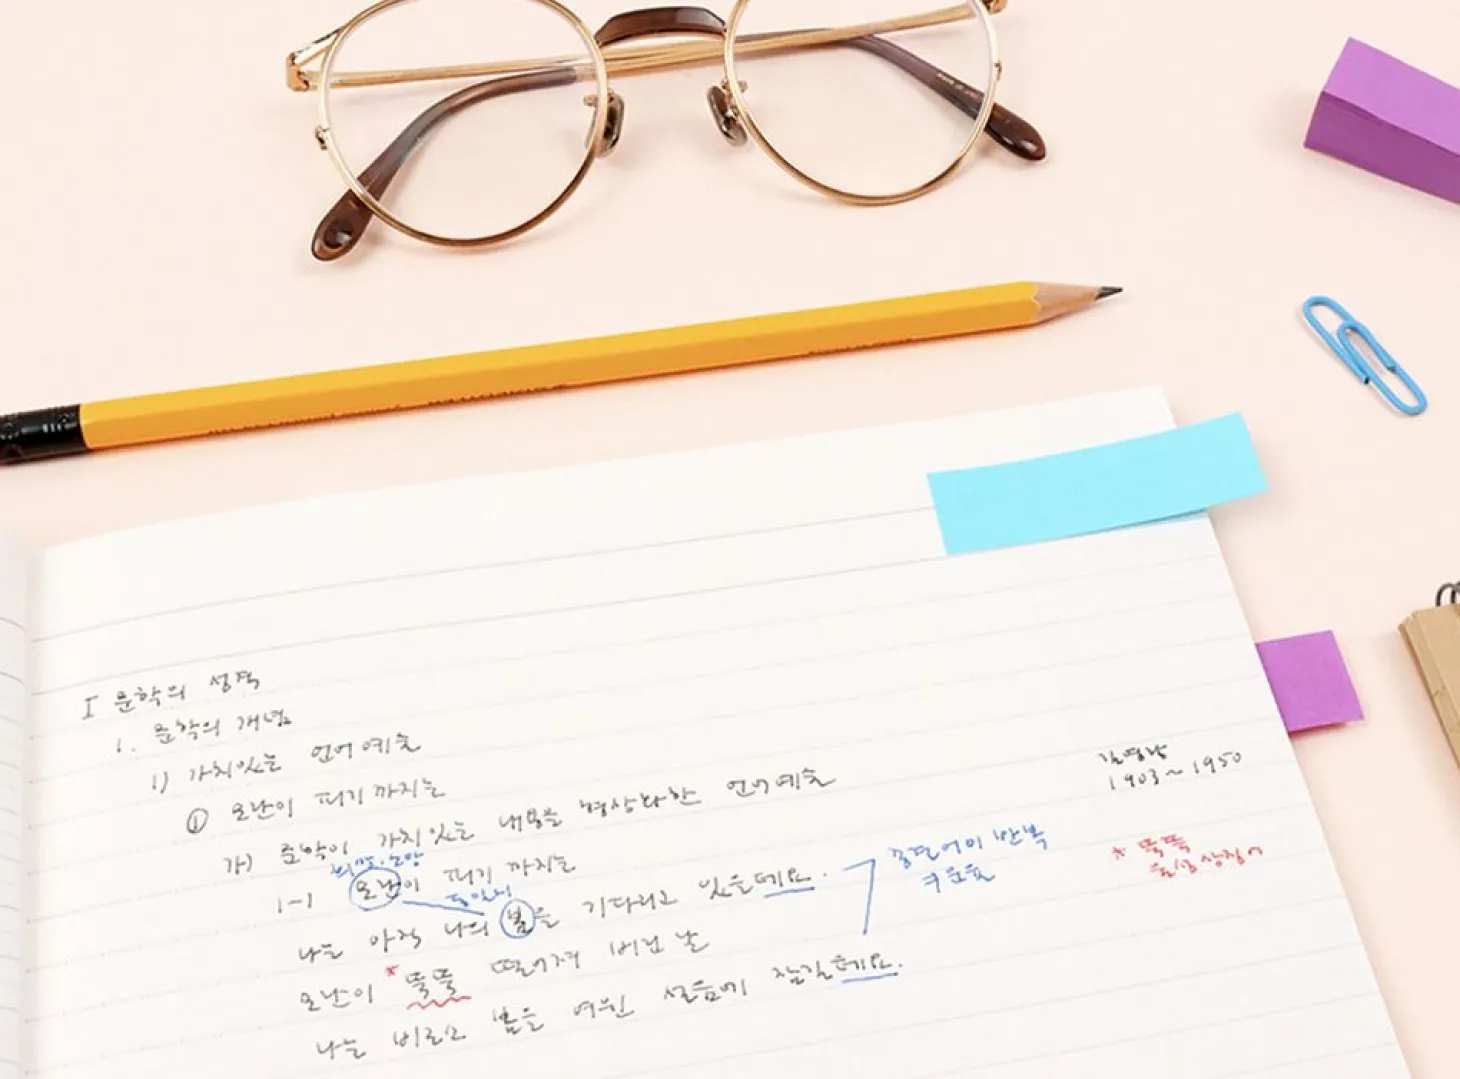 I 문학의 성격
1. 문학의 개념
1) 가치있는 언어예술
① 모란이 피기 까지는
가) 문학이 가치있는 내용을 형상화한 언어예술
김영랑
1903~1950
희망·소망
1-1 모란이 피기 까지는
동일시
나는 아직 나의 봄을 기다리고 있을테요.
종결어미 반복
→운율
* 뚝뚝
음성상징어
모란이 *뚝뚝 떨어져 버린 날
나는 비로소 봄을 여윈 설움에 잠길테요.